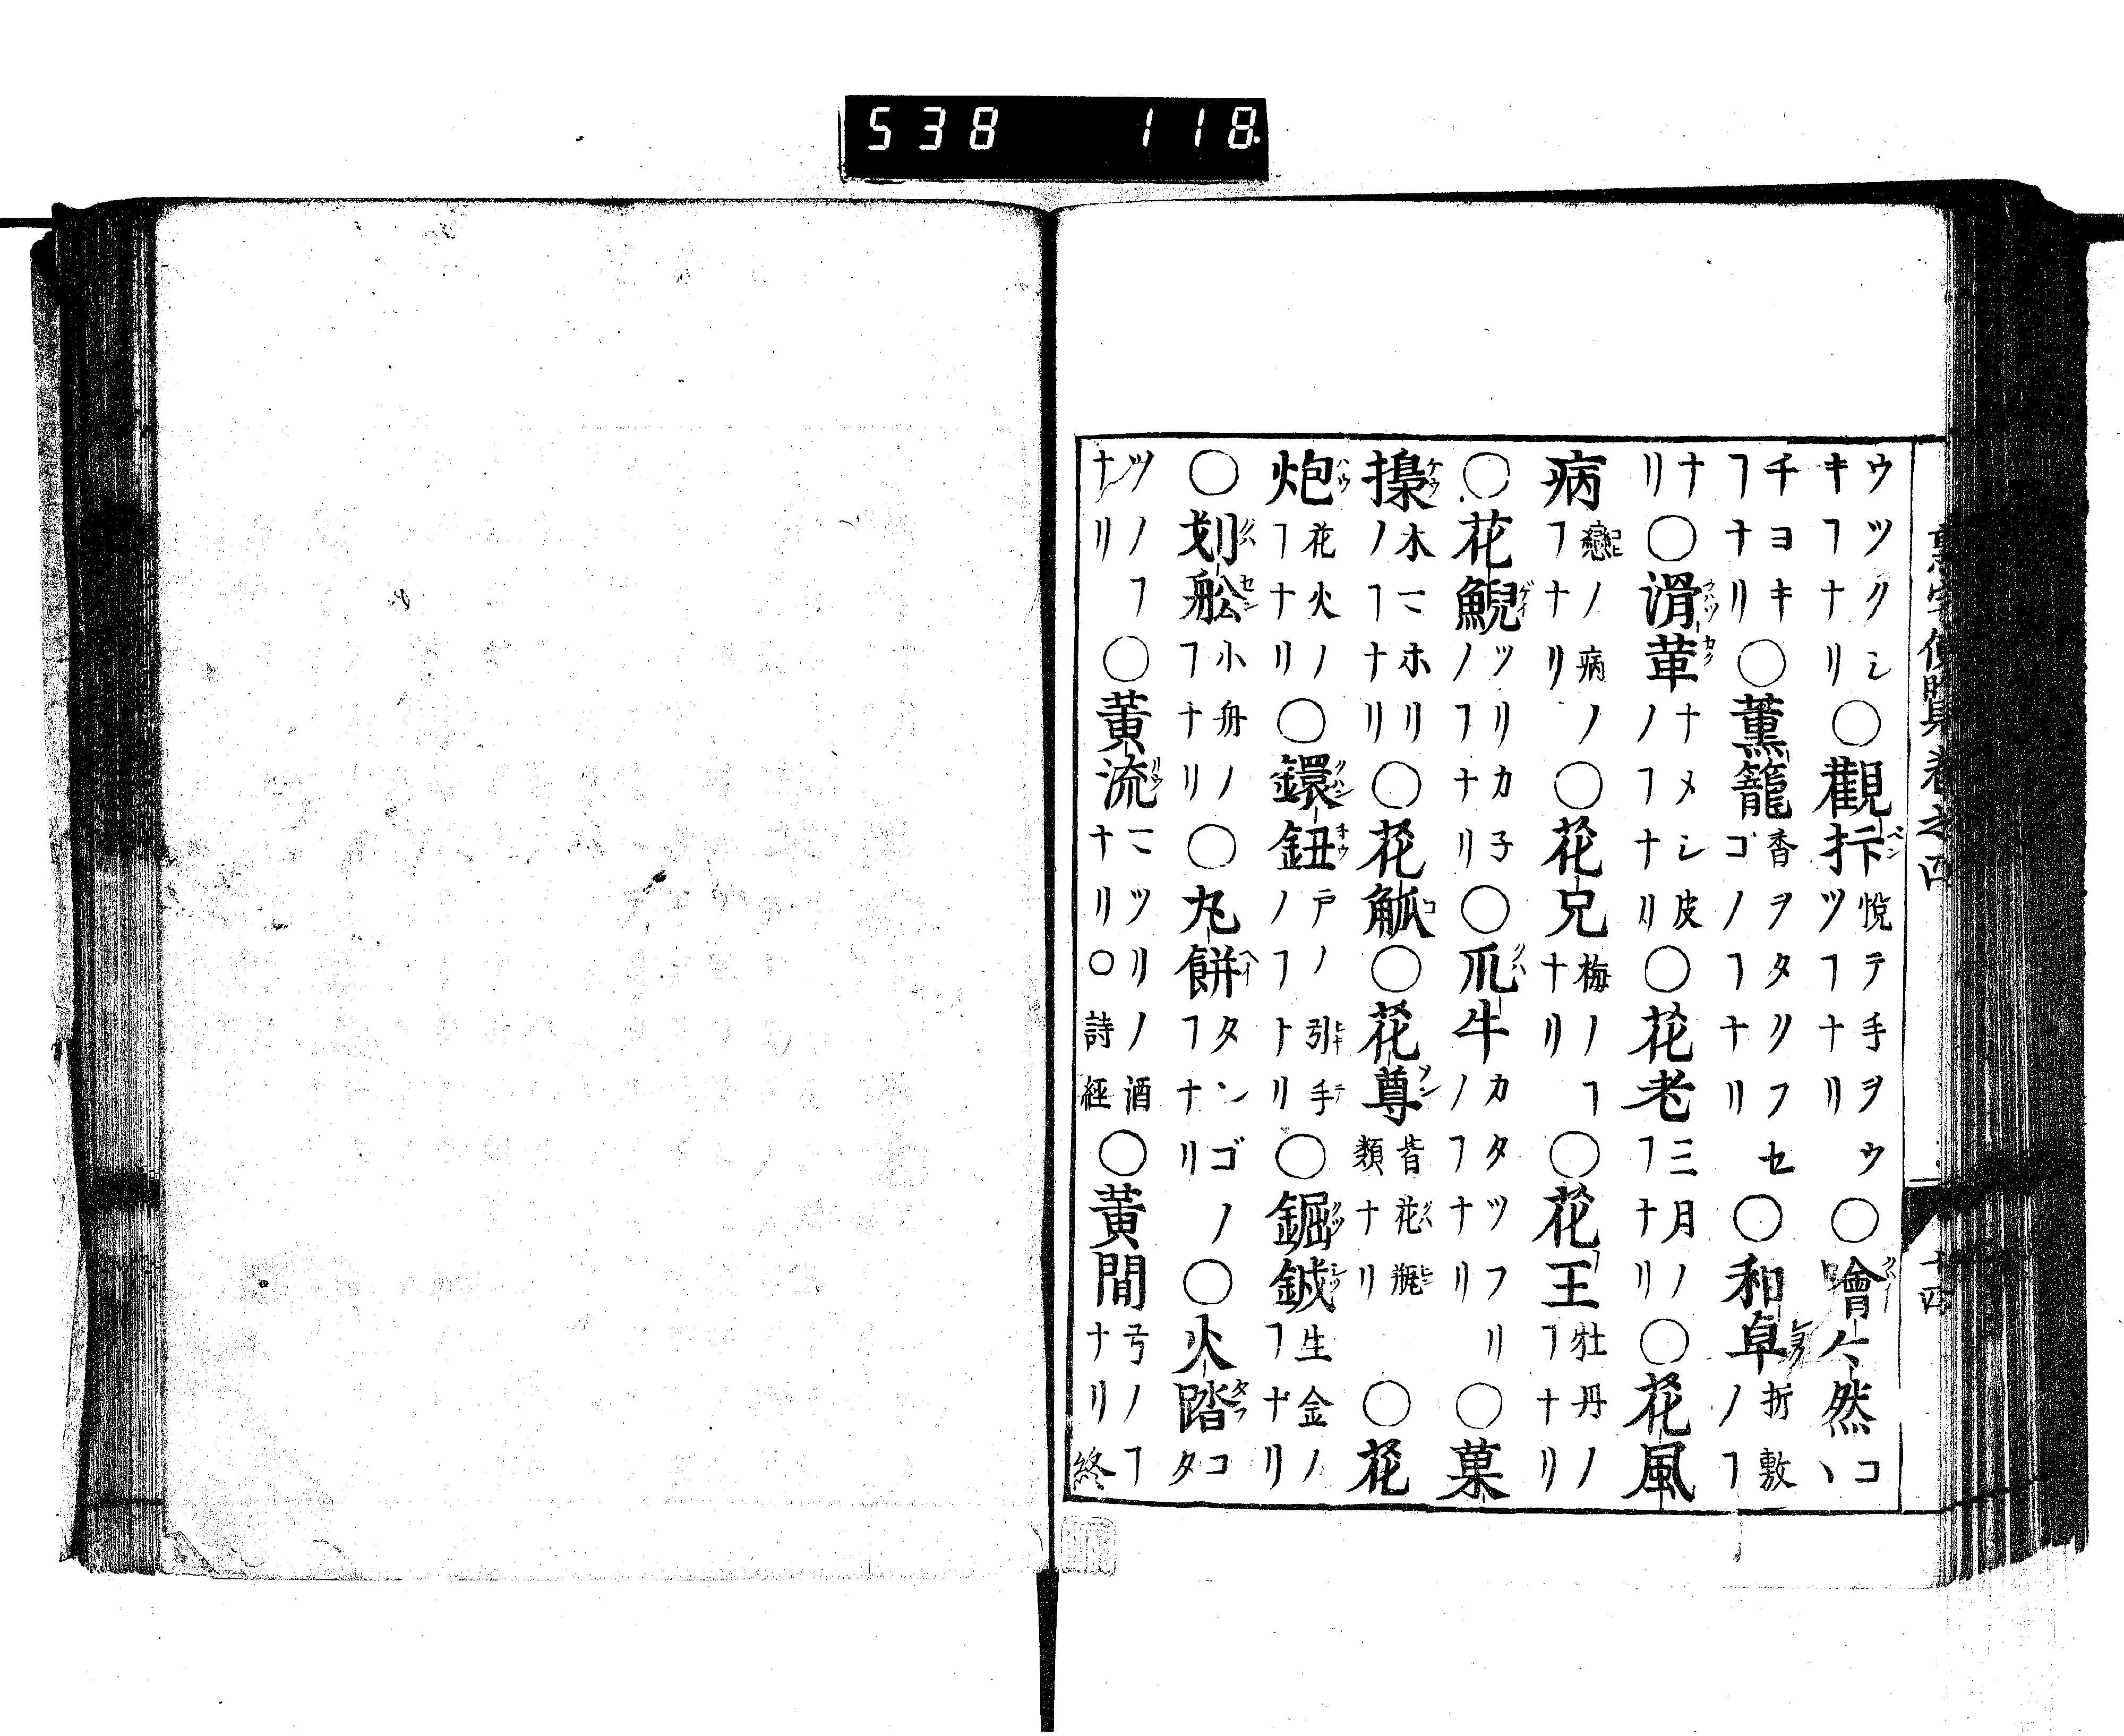 538 118
ウツクシキヿナリ○觀抃悦テ手ヲウツヿナリ○噲〻然コヽ
チヨキヿナリ○薫籠香ヲタリフセゴノヿナリ○和卓折敷ノヿ
ナリ○滑革ナメシ皮ノヿナリ○花老三月ノヿナリ○花風
病戀ノ病ノヿナリ○花兄梅ノヿナリ○花王牡丹ノヿナリ
○花鯢ツリカ子ノヿナリ○瓜牛カタツフリノヿナリ○菓
㩌木ニホリノヿナリ○花觚○花尊皆花瓶類ナリ○花
炮花火ノヿナリ○鐶鈕戸ノ引手ノヿトリ○鋸鉞生金ノヿナリ
○划舩小舟ノヿナリ○丸餅タンゴノヿナリ○火踏コタ
ツノヿナリ○黄流ニツリノ酒ナリ○詩経○黄間弓ノヿナリ終
卷之四
十四